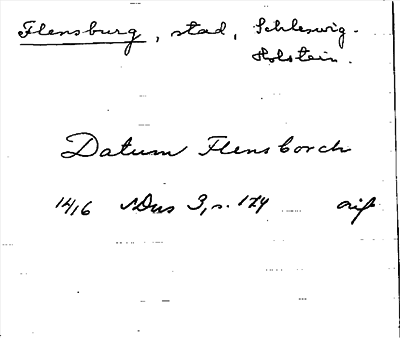 Flensburg, stad, Schleswig-
Holstein.
Datum Flensborch
1416 SDns 3, s. 179 orig